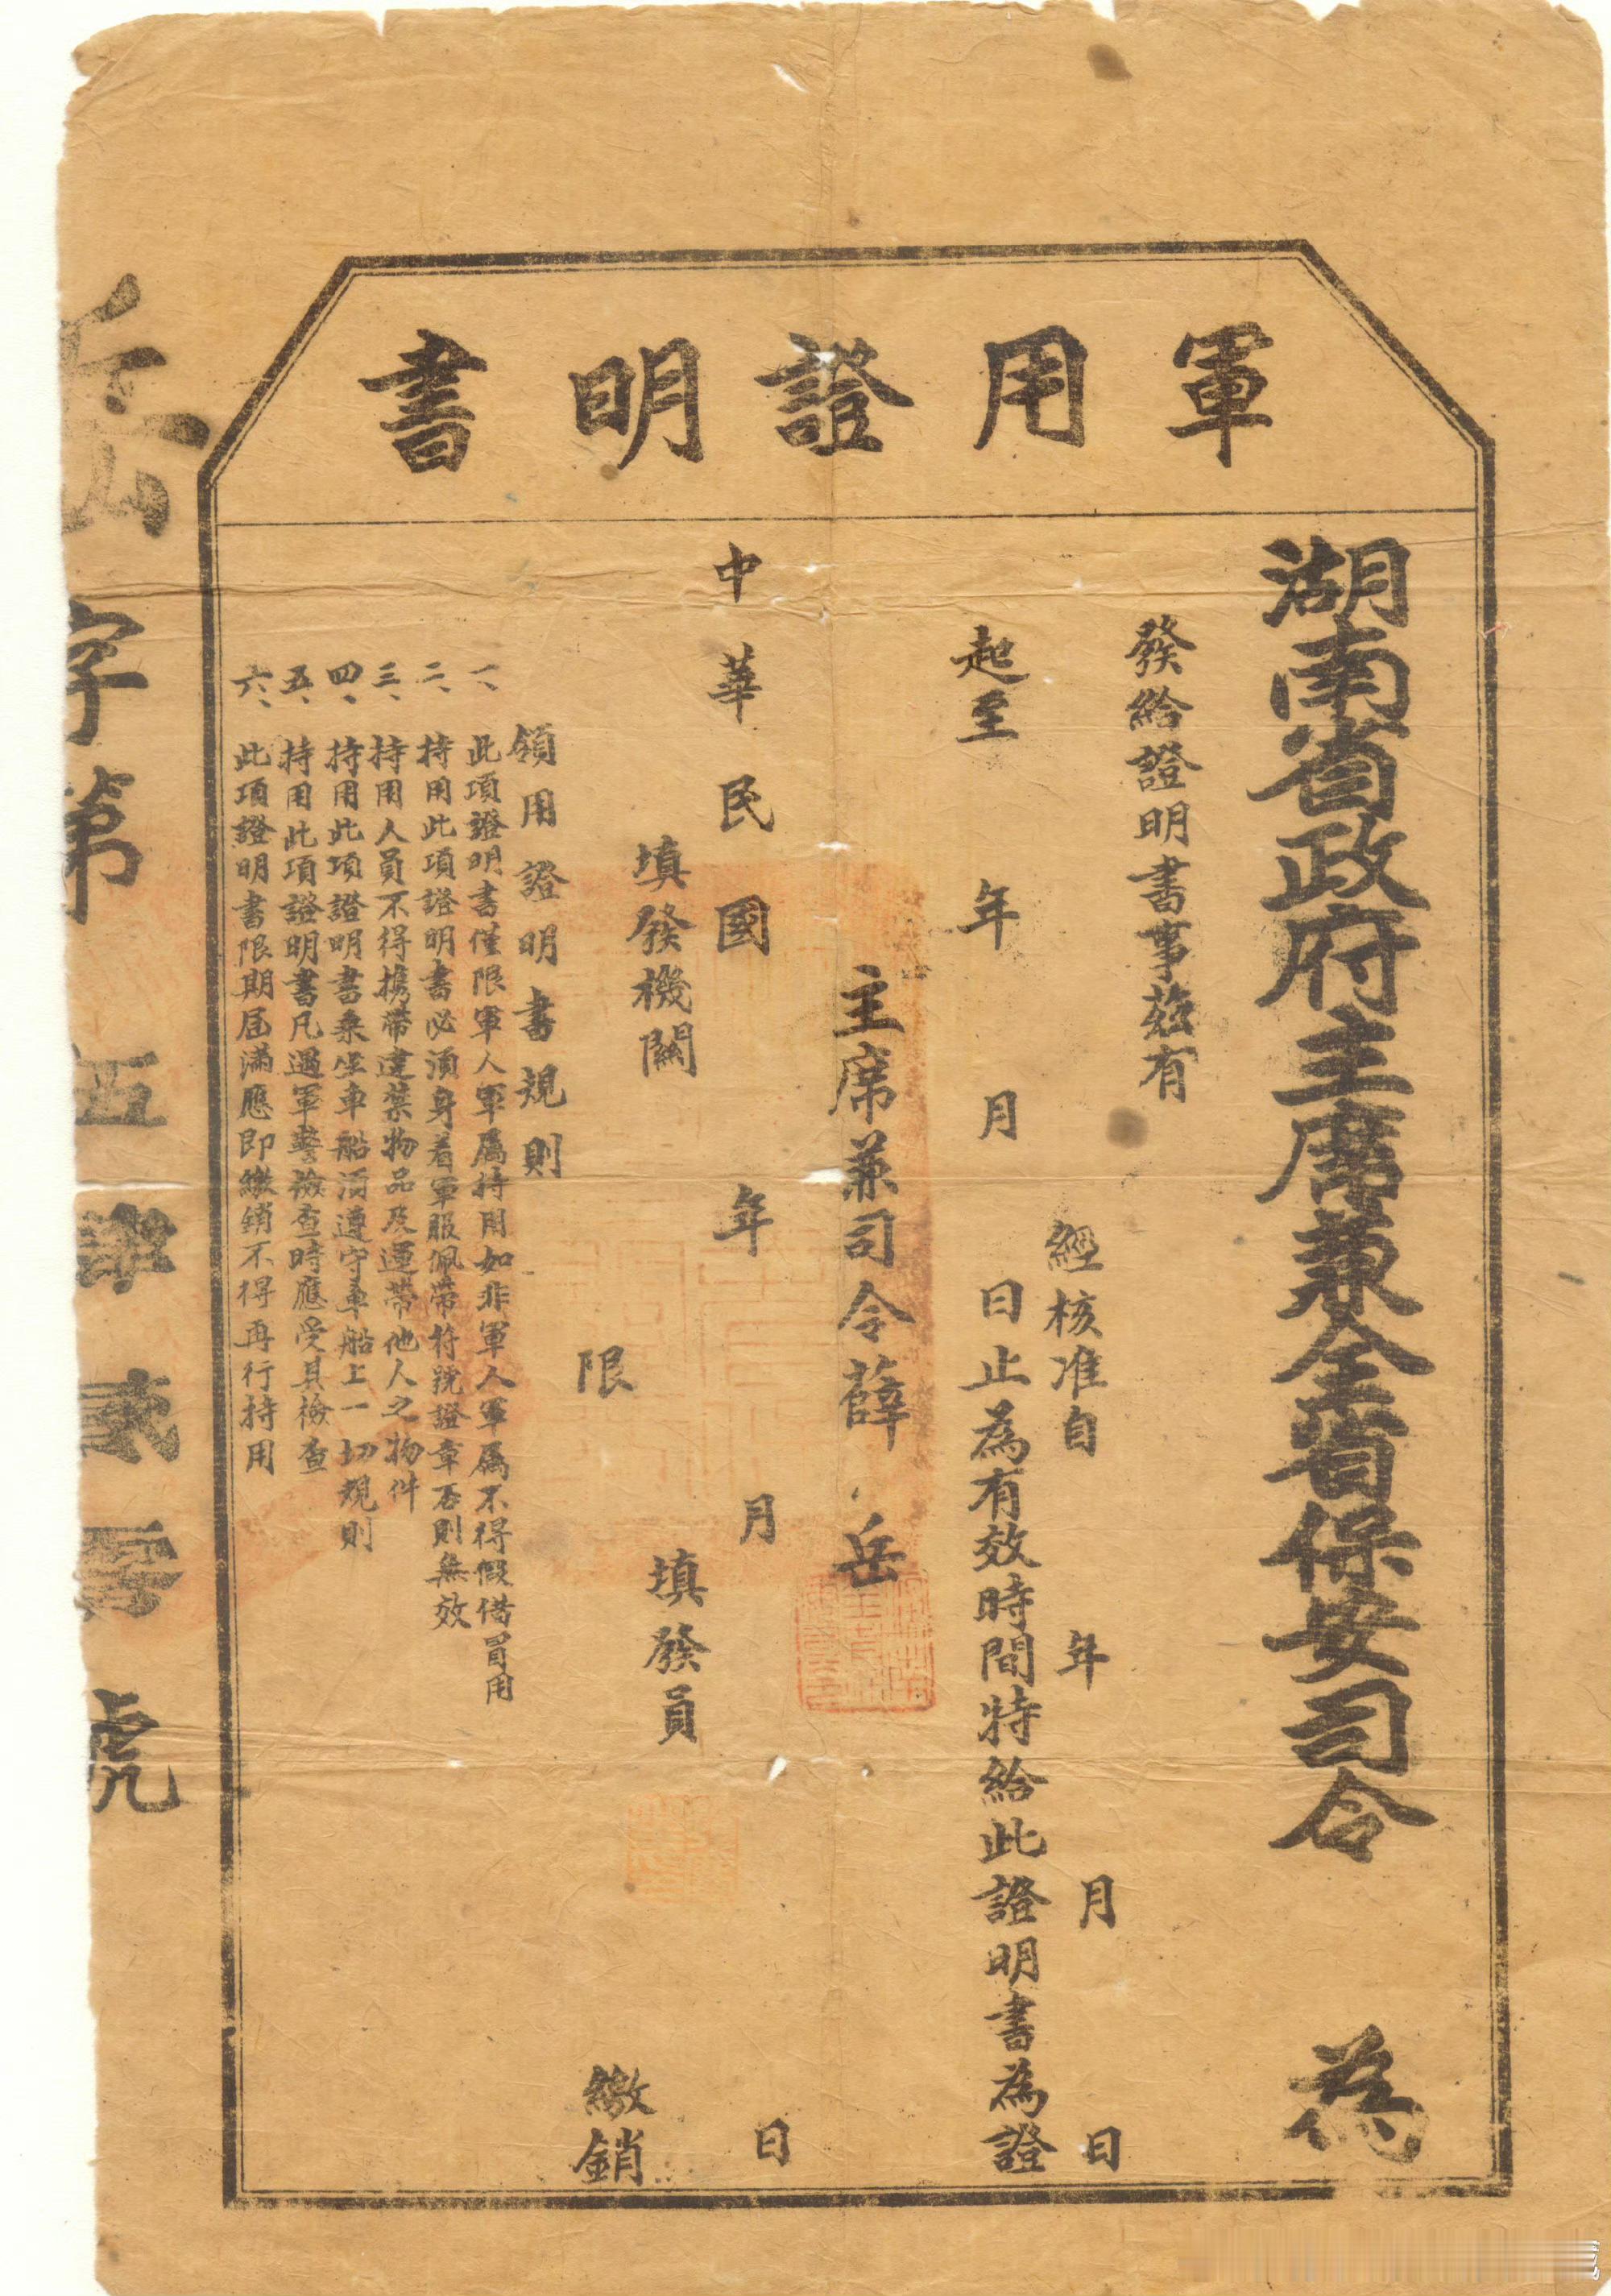 軍用證明書
湖南省政府主席兼全省保安司令 為
發給證明書事茲有
經核准自 年 月 日
起至 年 月 日止為有效時間特給此證明書為證
主席兼司令薛岳
中華民國 年 月 日
填發機關 填發員
限 繳銷
領用證明書規則
一、此項證明書僅限軍人軍屬持用如非軍人軍屬不得假借冒用
二、持用此項證明書必須身着軍服佩帶符號證章否則無效
三、持用人員不得攜帶違禁物品及運帶他人之物件
四、持用此項證明書乘坐車船須遵守車船上一切規則
五、持用此項證明書凡遇軍警檢查時應受其檢查
六、此項證明書限期屆滿應即繳銷不得再行持用
岳字第伍肆貳零號